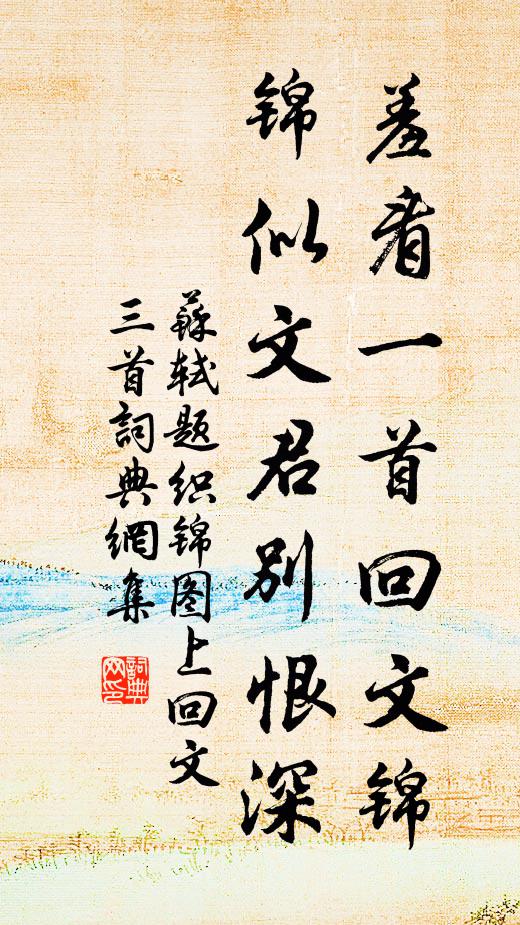 羞看一首回文锦
锦似文君别恨深
蘇轼题织锦图上回文
三首詞典網集
詞典网印